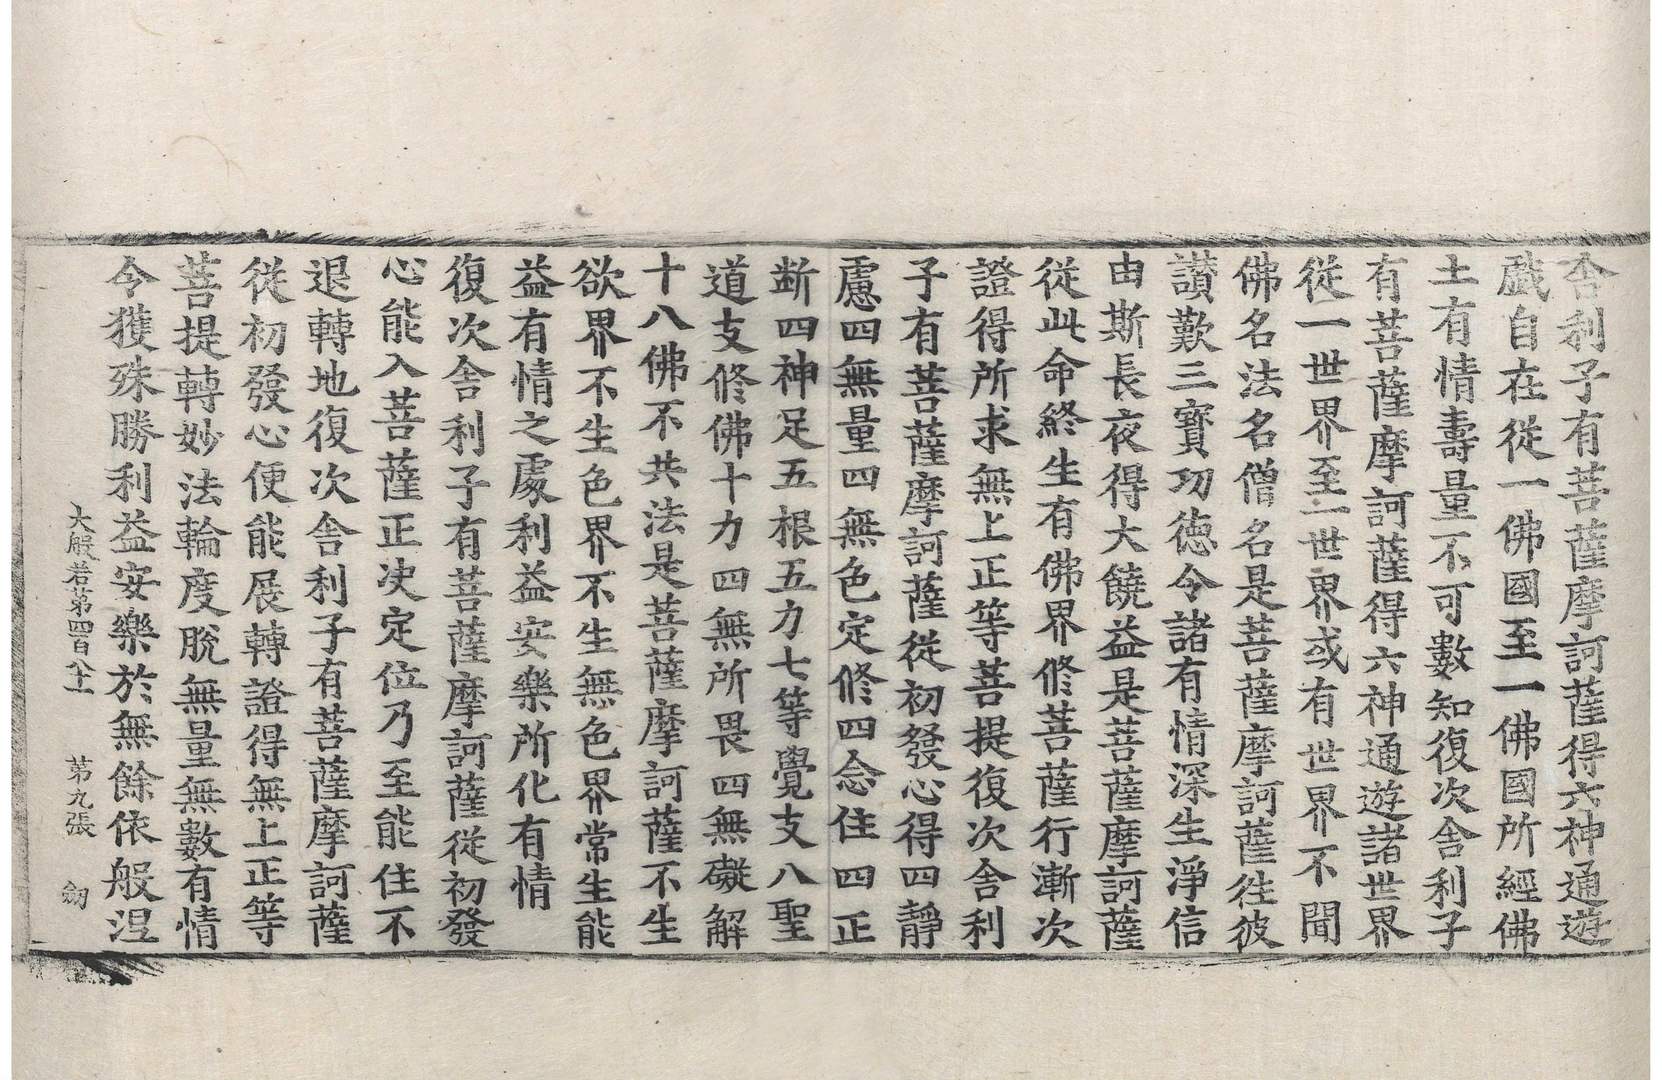 舍利子有菩薩摩訶薩得六神通遊
戲自在從一佛國至一佛國所經佛
土有情壽量不可數知復次舍利子
有菩薩摩訶薩得六神通遊諸世界
從一世界至一世界或有世界不聞
佛名法名僧名是菩薩摩訶薩往彼
讃歎三寶功德令諸有情深生淨信
由斯長夜得大饒益是菩薩摩訶薩
從此命終生有佛界修菩薩行漸次
證得所求無上正等菩提復次舍利
子有菩薩摩訶薩從初發心得四靜
慮四無量四無色定修四念住四正
斷四神足五根五力七等覺支八聖
道支修佛十力四無所畏四無礙解
十八佛不共法是菩薩摩訶薩不生
欲界不生色界不生無色界常生能
益有情之處利益安樂所化有情
復次舍利子有菩薩摩訶薩從初發
心能入菩薩正決定位乃至能住不
退轉地復次舍利子有菩薩摩訶薩
從初發心便能展轉證得無上正等
菩提轉妙法輪度脫無量無數有情
令獲殊勝利益安樂於無餘依般涅
大般若第四百八十一　第九張　劒